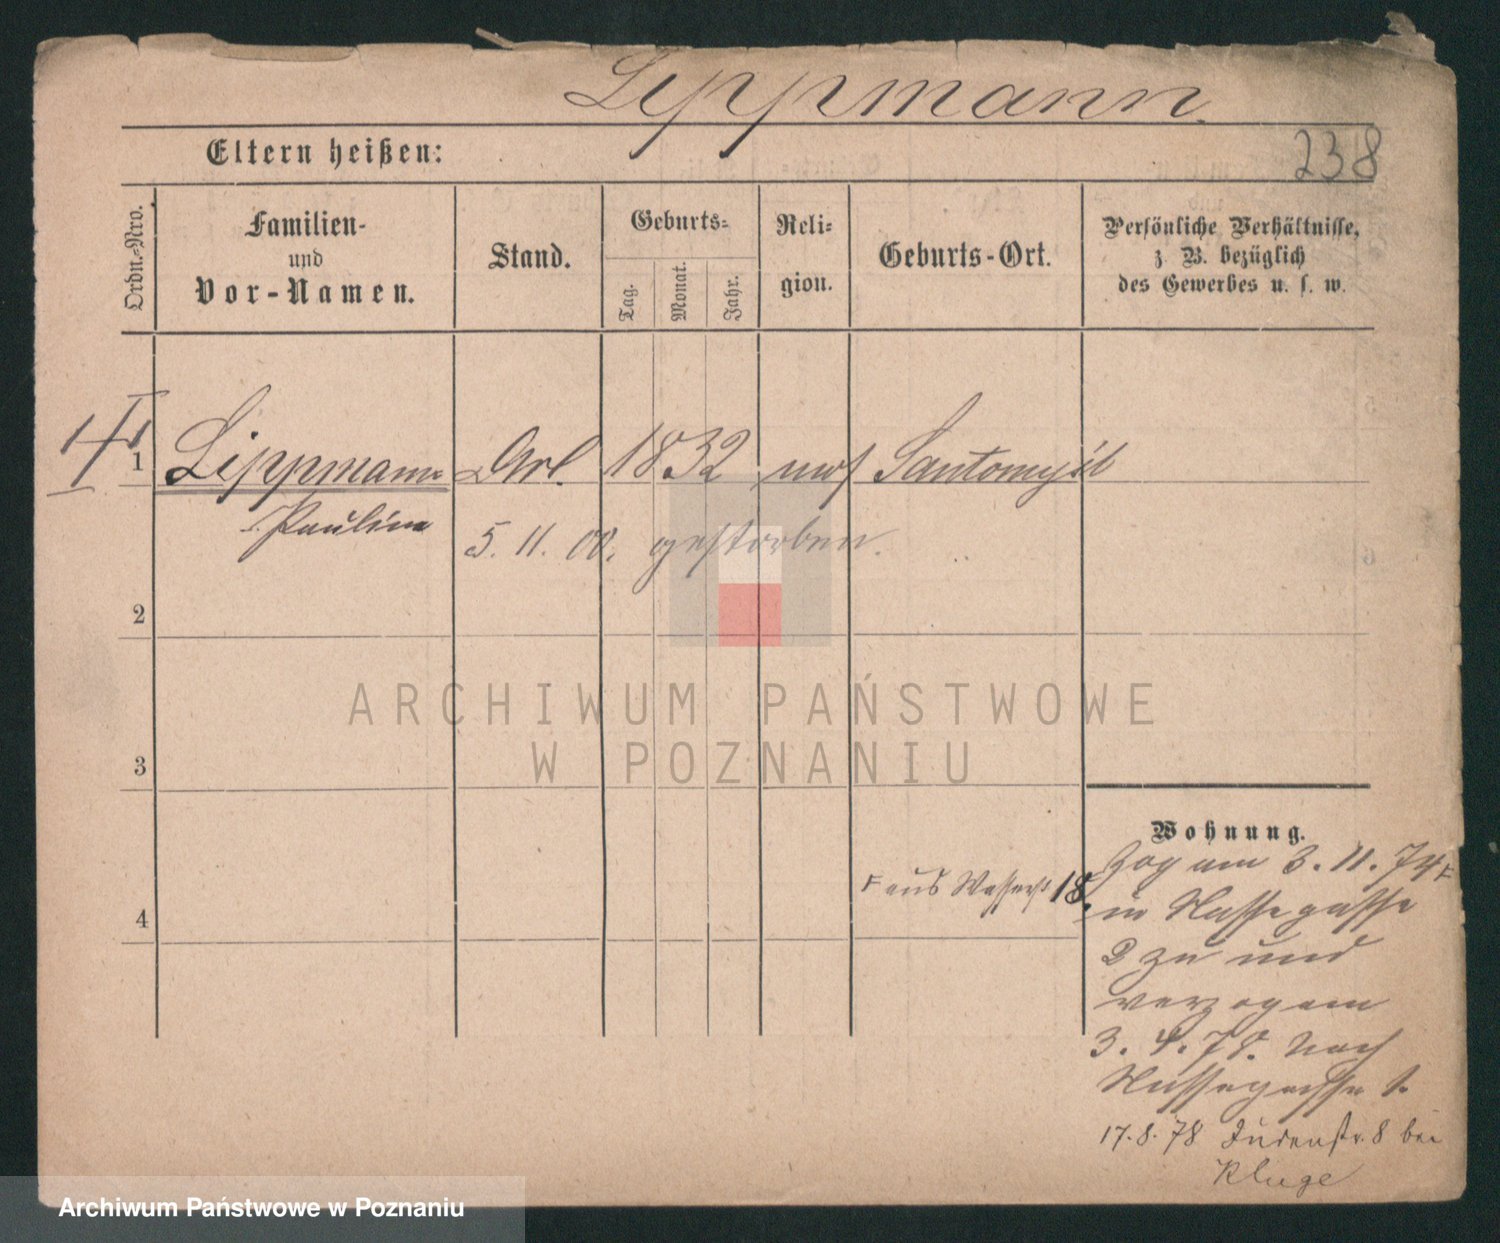 Lippmann.
238
Eltern heißen:
Ordn.-Nro.
Familien-
und
Vor-Namen.
Stand.
Geburts-
Tag.
Monat.
Jahr.
Reli-
gion.
Geburts-Ort.
Persönliche Verhältnisse,
z B. bezüglich
des Gewerbes u. s. w.
1 Lippmann 1832 mos Santomysl
Pauline
5. 11. 00. gestorben.
2
3
4
ARCHIWUM PAŃSTWOWE
W POZNANIU
Wohnung.
Zog am 3. 11. 74
aus Wasserst 18.
in Nassegasse
2 zu und
verzog am
3. 4. 78. nach
Nassegasse 1.
17.8.78 Judenstr. 8 bei
Kluge
Archiwum Państwowe w Poznaniu